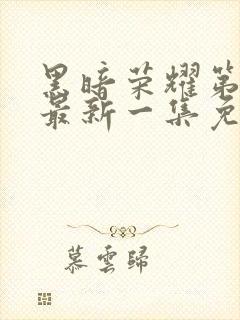 黑暗荣耀第
最新一集免
慕雲歸